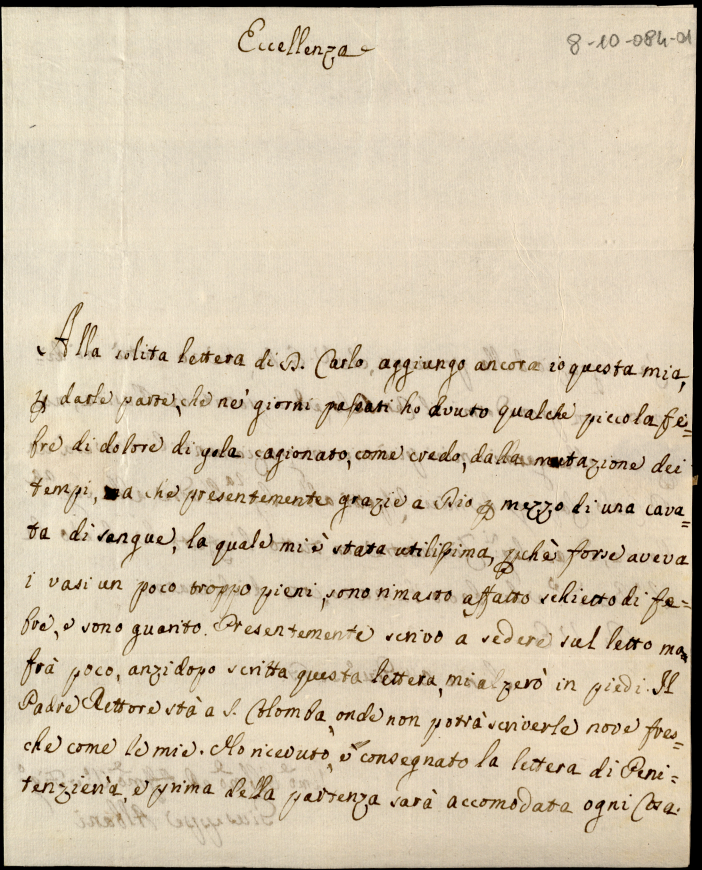 Eccellenza
8-10-084-01
Alla solita lettera di D. Carlo, aggiungo ancora io questa mia,
p darle parte, che ne' giorni passati ho avuto qualche piccola fe=
bre di dolore di gola cagionato, come credo, dalla mutazione dei
tempi, ma che presentemente grazie a Dio p mezzo di una cava=
ta di sangue, la quale mi è stata utilissima, pchè forse aveva
i vasi un poco troppo pieni, sono rimasto affatto schietto di fe=
bre, e sono guarito. Presentemente scrivo a sedere sul letto ma
frà poco, anzi dopo scritta questa lettera, mi alzerò in piedi. Il
Padre Rettore stà a S. Colomba, onde non potrà scriverle nove fres=
che come le mie. Ho ricevuto, e consegnato la lettera di Peni=
tenzieria e prima della partenza sarà accomodata ogni Cosa.
Giuseppe Albani